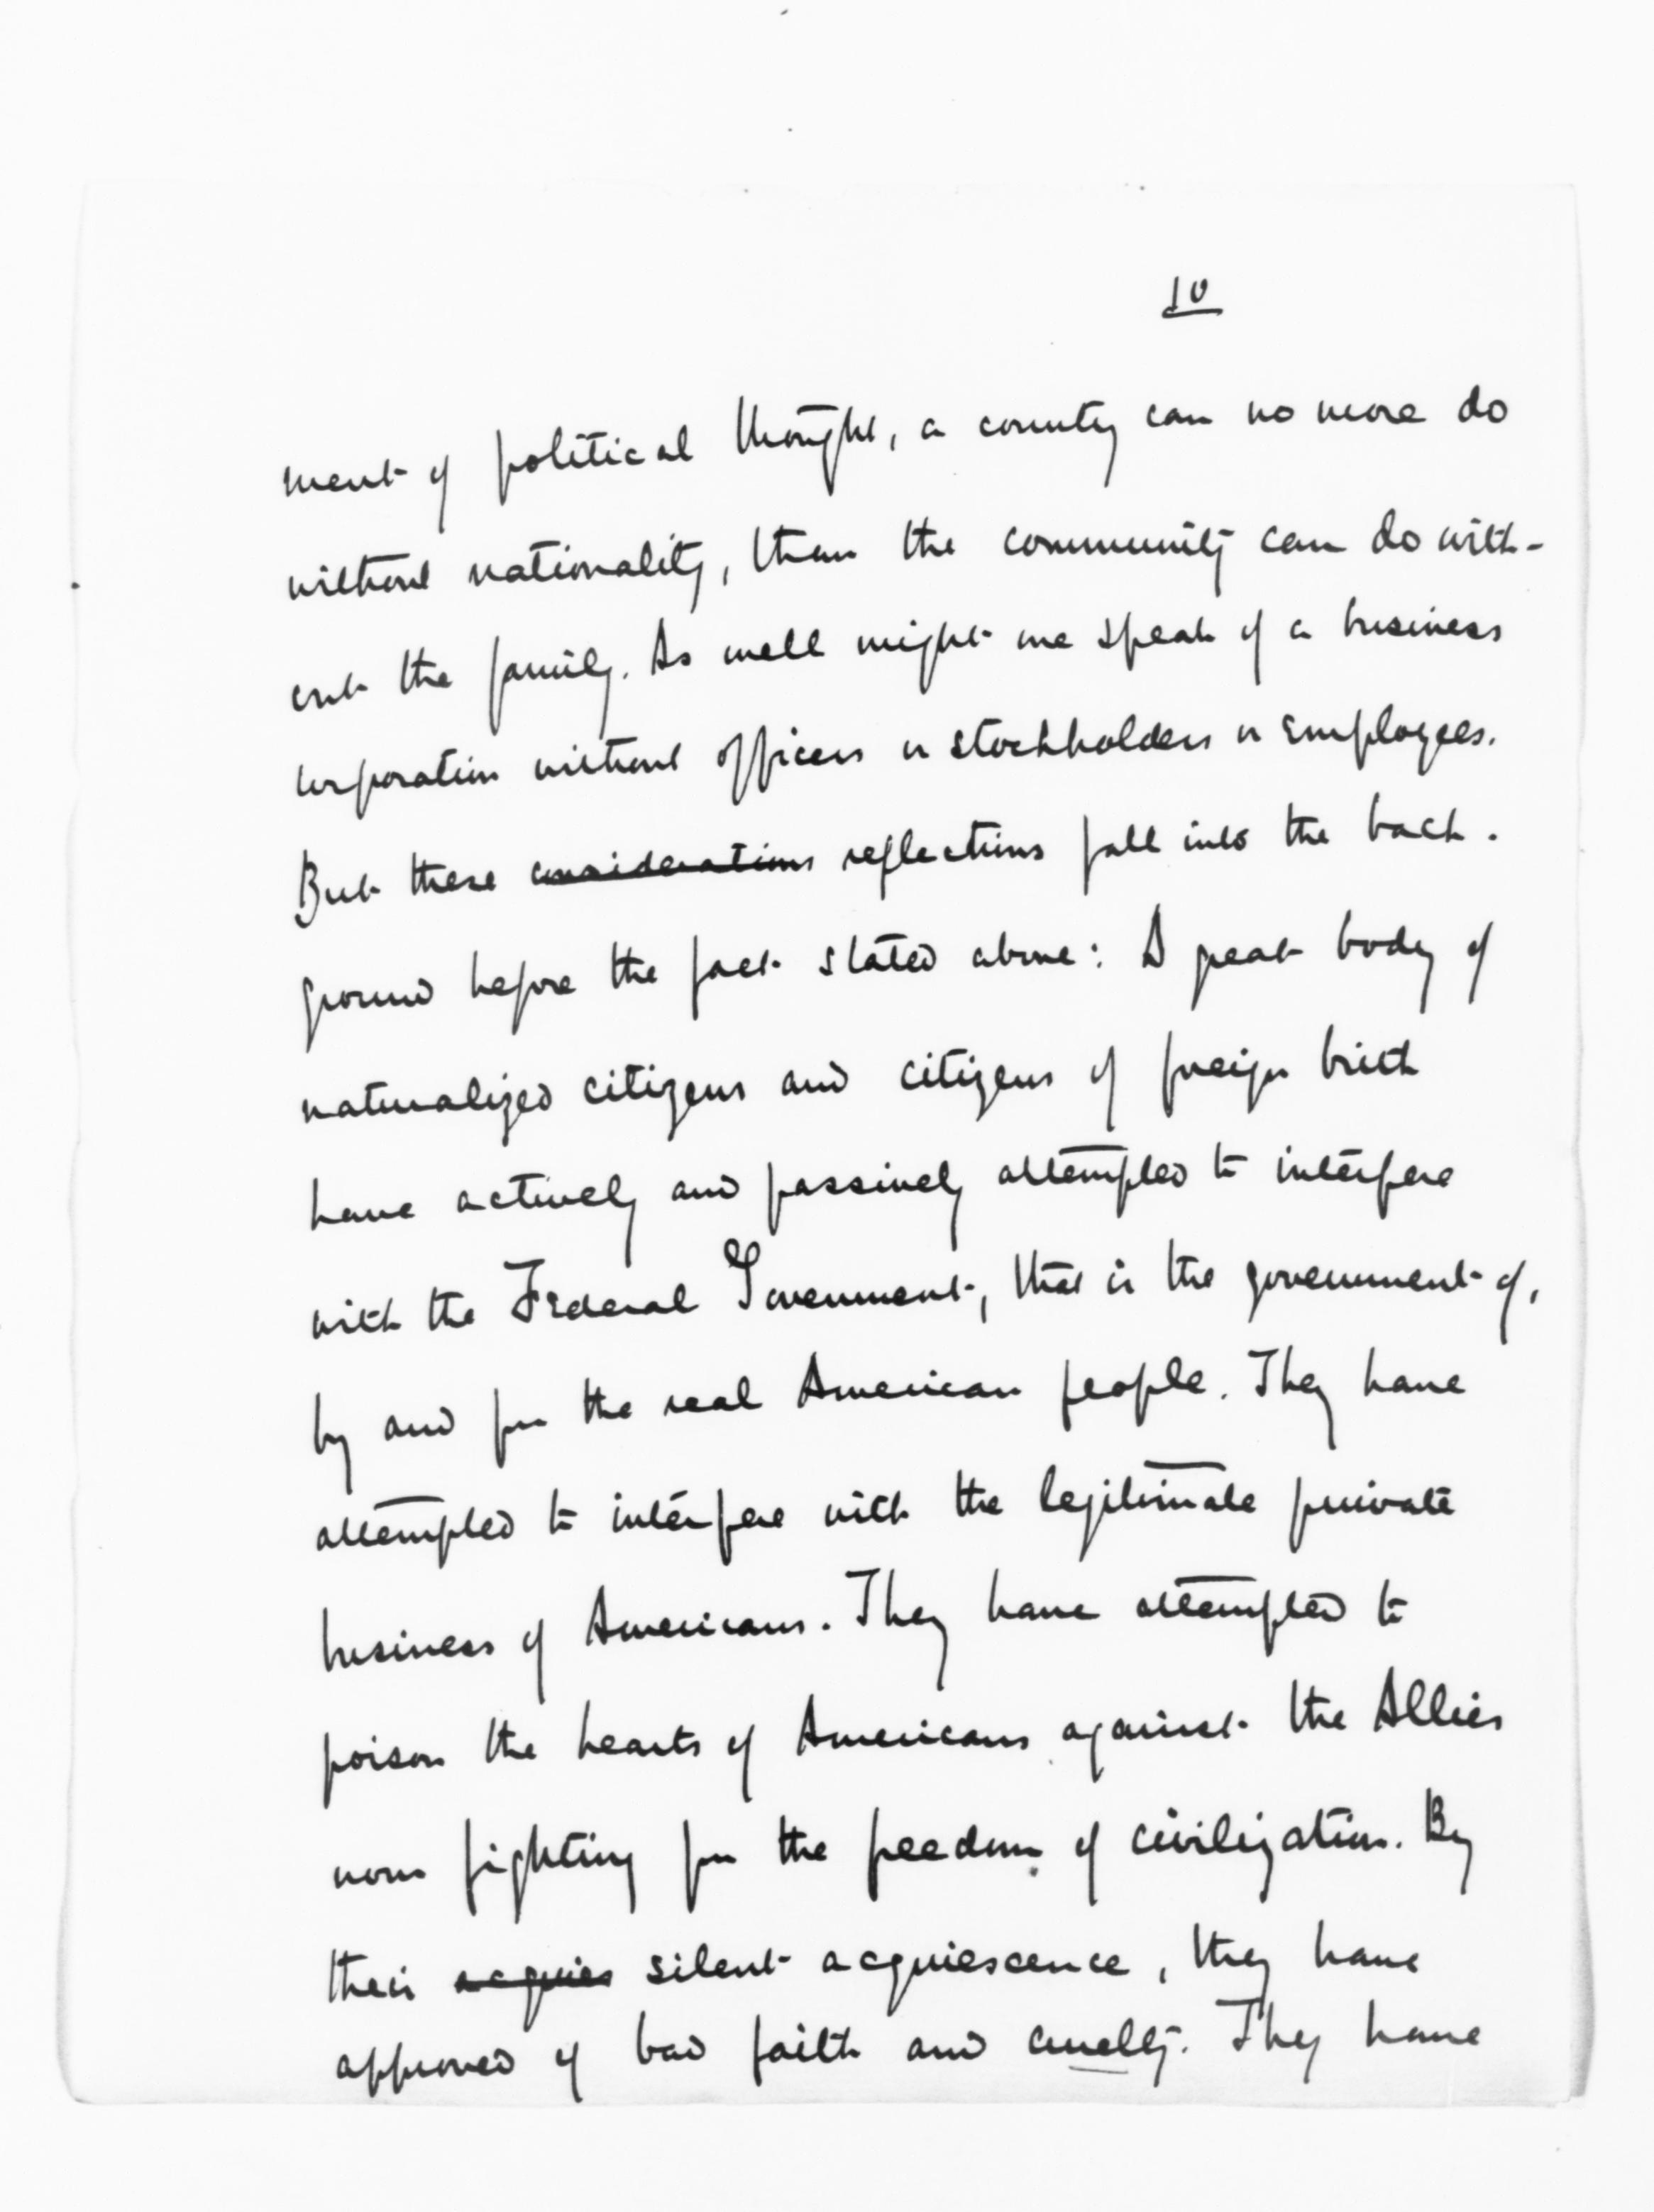 10
ment of political thought, a country can no more do
without nationality, than the community can do with-
out the family. As well might one speak of a business
corporation without officers or stockholders or employees.
But these considerations reflections fall into the back.
ground before the fact stated above: A great body of
naturalized citizens and citizens of foreign birth
have actively and passively attempted to interfere
with the Federal Government, that is the government of,
by and for the real American people. They have
attempted to interfere with the legitimate private
business of Americans. They have attempted to
poison the hearts of Americans against the Allies
now fighting for the freedom of civilization. By
their acquies silent acquiescence, they have
approved of bad faith and cruelty. They have